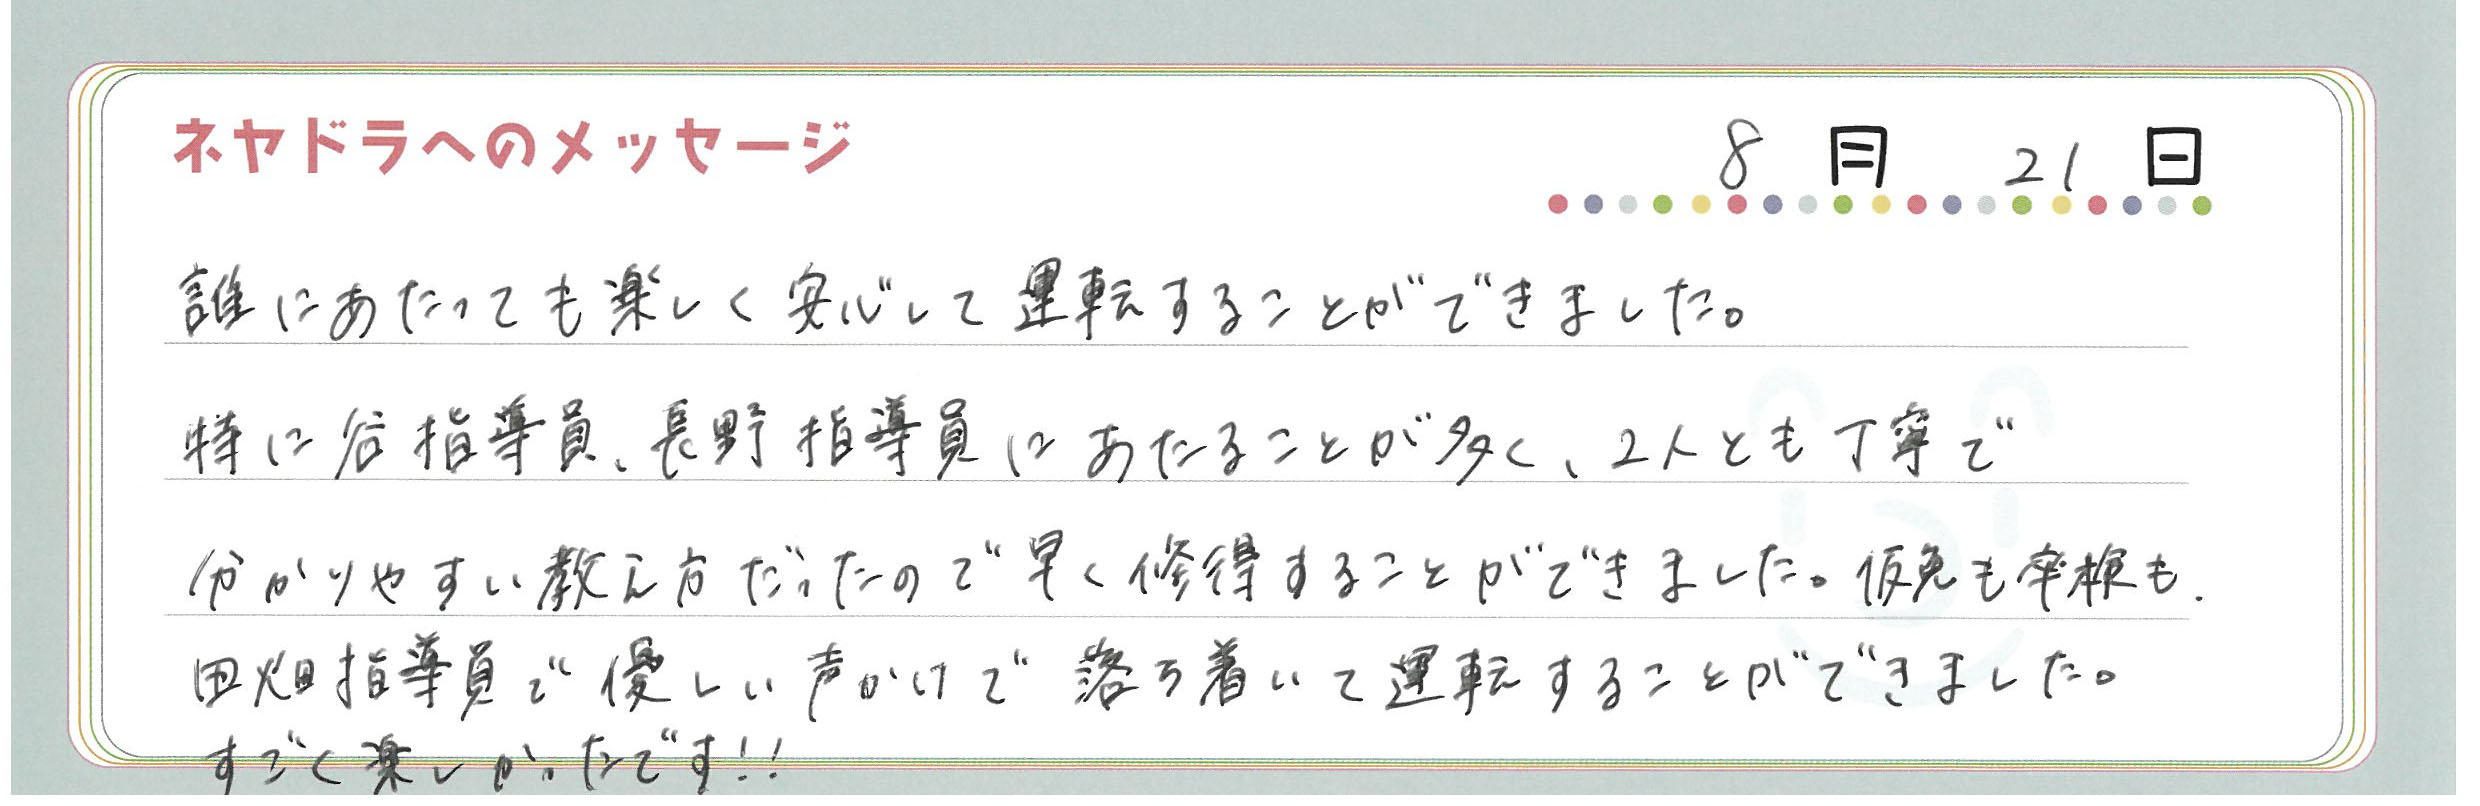 ネヤドラへのメッセージ
8月 21日
誰にあたっても楽しく安心して運転することができました。
特に谷指導員、長野指導員にあたることが多く、2人とも丁寧で
分かりやすい教え方だったので早く修得することができました。仮免も卒検も、
田畑指導員で優しい声かけで落ち着いて運転することができました。
すごく楽しかったです!!